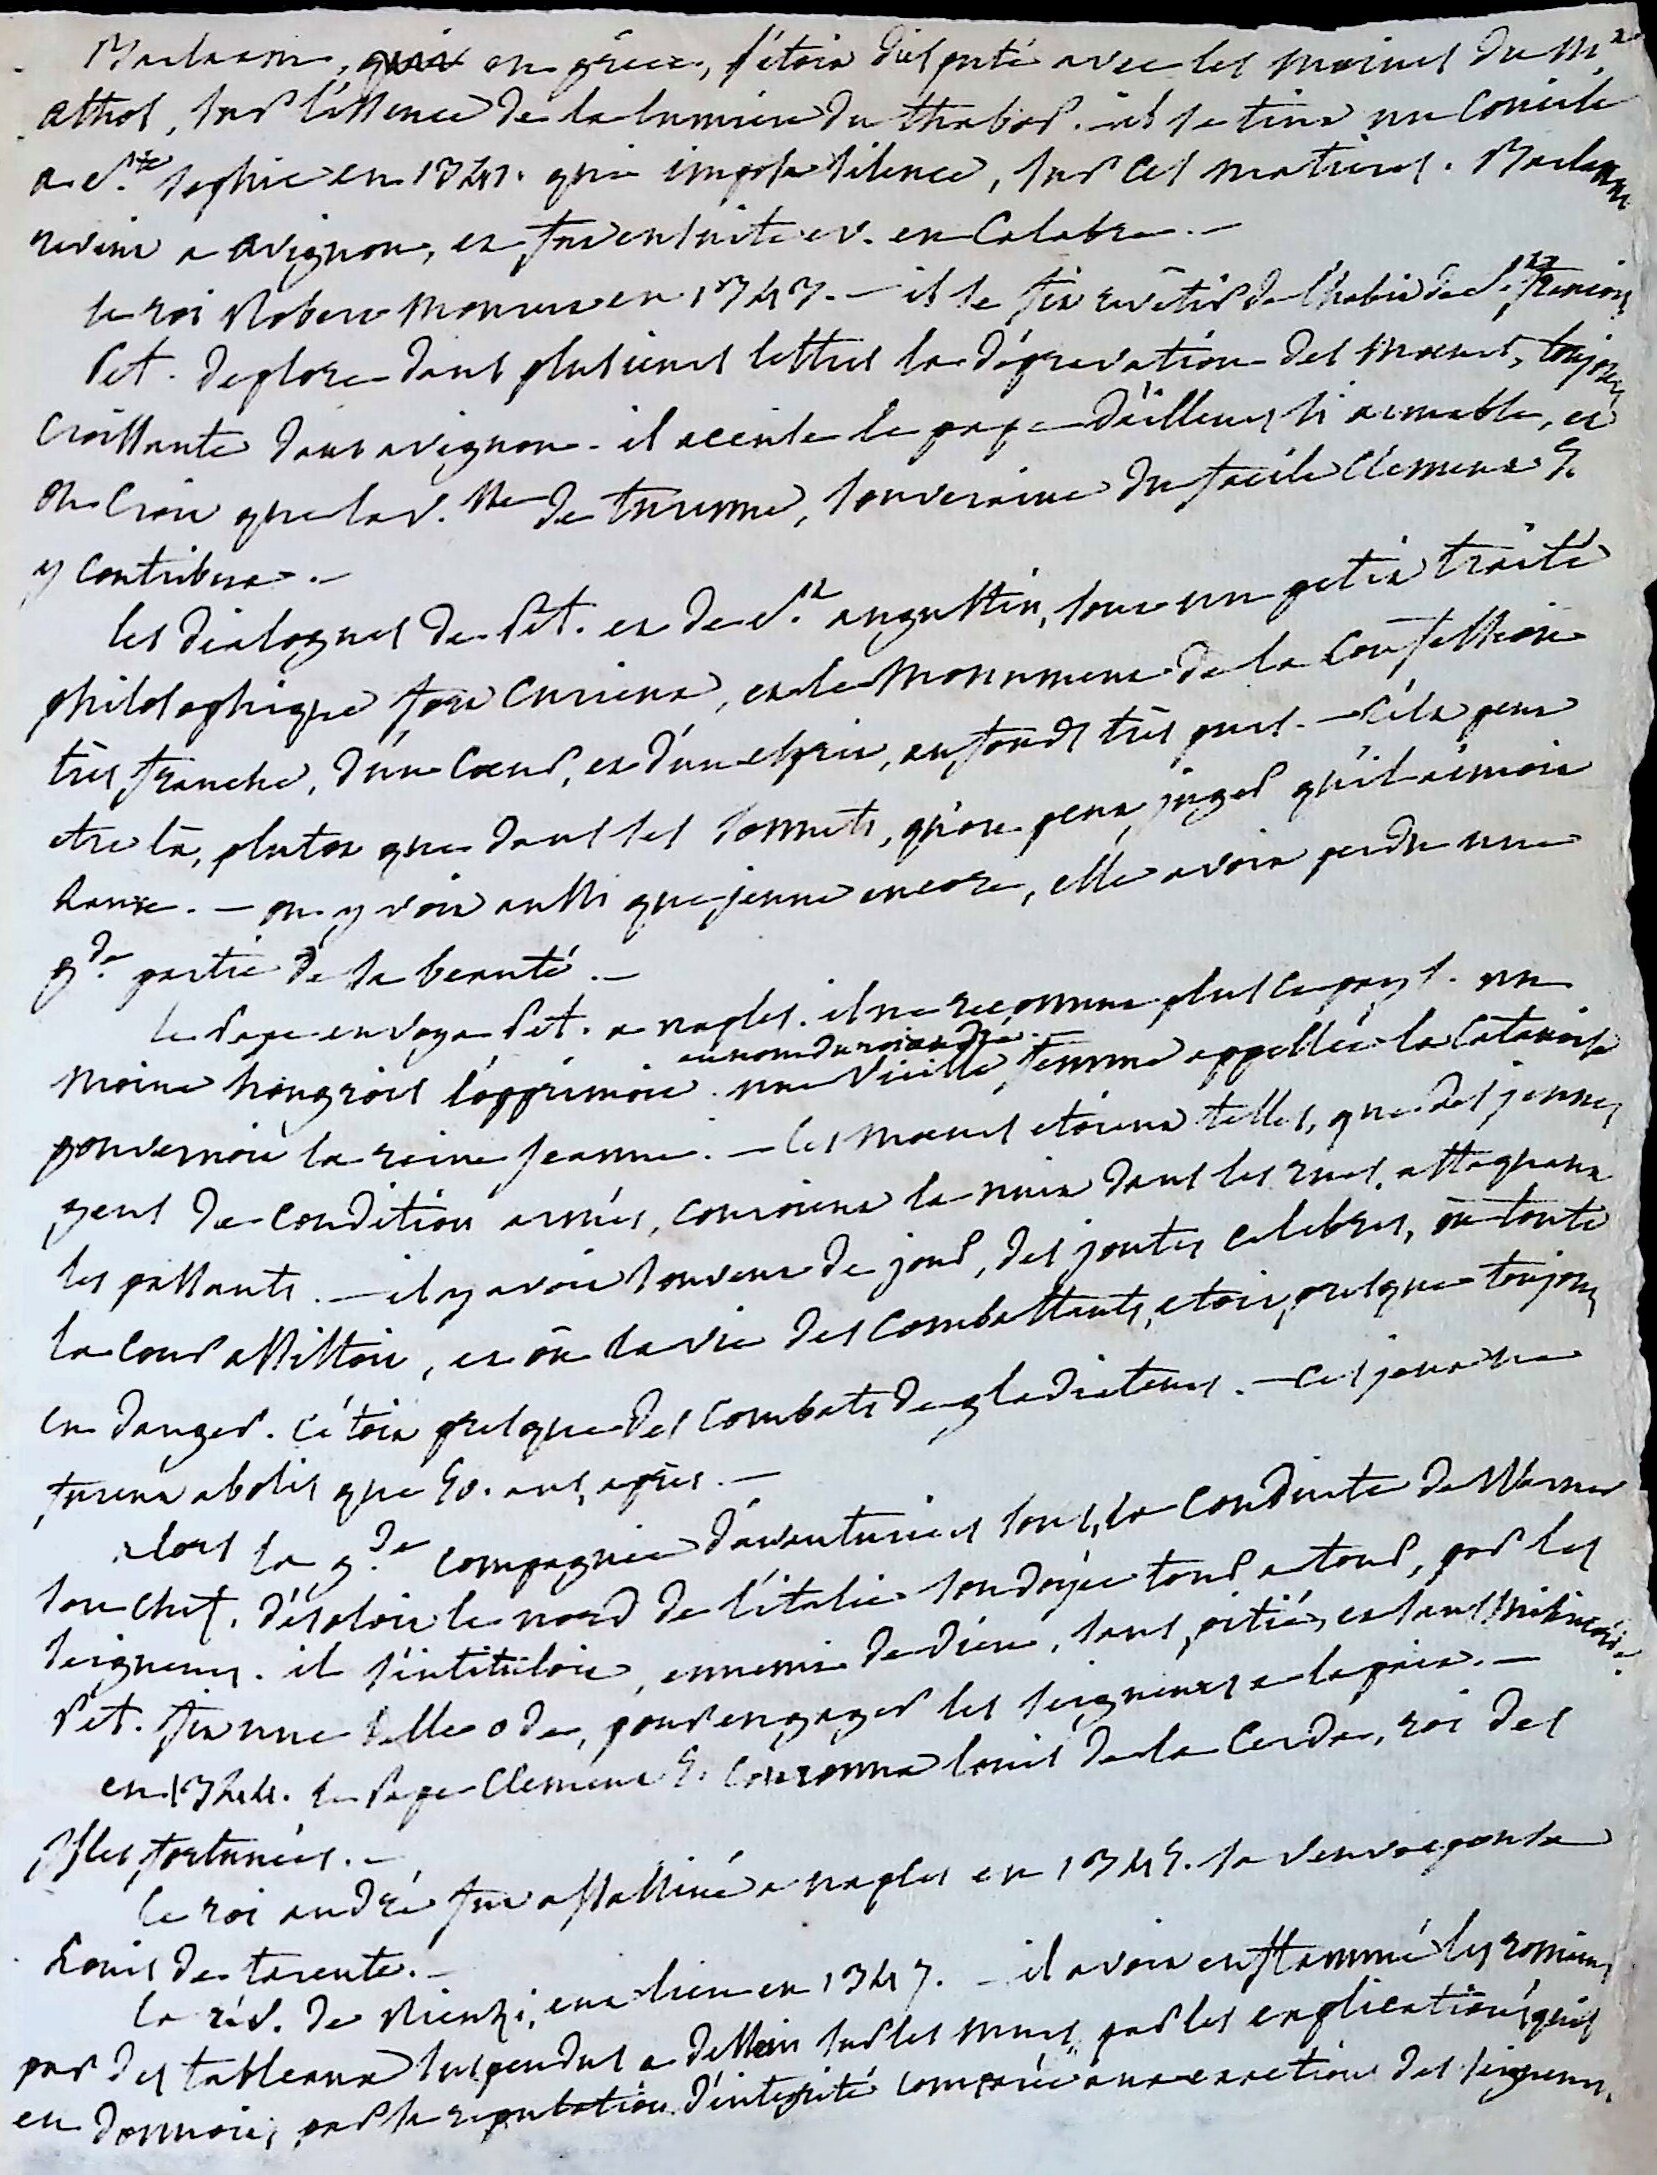 Barlaam, en grèce, s'étoit disputé avec les moines du M.t
athos, sur l'essence de la lumiere du thabor. il se tint un Concile
a S.te sophie en 1341. qui imposa silence, sur ces matieres. Barlaam
revint a avignon, et fut ensuite ev. en Calabre. —
le roi Robert mourut en 1343. — il se fit revêtir de l'habit de S.t françois
Pet. deplore dans plusieurs lettres la dépravation des mœurs, toujours
croissante dans avignon. il accuse le pape d'ailleurs si aimable, et
on croit que la v.tesse de turenne, souveraine du facile Clement 6.
y contribua. —
les dialogues de Pet. et de S.t augustin, sont un petit traité
philosophique fort curieux, et le monument de la Confession
très franche, d'un cœur, et d'un esprit, au fonds très purs. — c'est peut
etre là, plutot que dans ses sonnets, qu'on peut juger qu'il aimoit
Laure. — on y voit aussi que jeune encore, elle avoit perdu une
g.de partie de sa beauté. —
le Pape envoya Pet. a naples. il ne reconnut plus ce pays. un
moine hongrois l'opprimoit au nom du roi andré. une vieille femme appellée la Catanoise
gouvernoit la reine jeanne. — les mœurs etoient telles, que des jeunes
gens de condition armés, couroient la nuit dans les rues, attaquant
les passants. — il y avoit souvent de jour, des joutes celebres, où toute
la Cour assistoit, et où la vie des Combattants, etoit presque toujours
en danger. c'étoit presque des combats de gladiateurs. — ces jeux ne
furent abolis que 60. ans après. —
alors la g.de compagnie d'aventuriers sous la conduite de Warner
son chef, désoloit le nord de l'italie soudoyée tour a tour, par les
seigneurs. il s'intituloit, ennemi de dieu, sans pitié, et sans misericorde.
Pet. fit une belle ode, pour engager les seigneurs a la paix. —
en 1344. le Pape Clement 6. couronna louis de la Cerda, roi des
Isles fortunées. —
le roi andré fut assassiné a naples en 1345. sa veuve epousa
Louis de tarente. —
la rév. de Rienzi, eut lieu en 1347. — il avoit enflammé les romains
par des tableaux suspendus a dessein sur les murs, par les explications qu'il
en donnoit, par sa reputation d'intégrité comparée aux exactions des seigneurs.